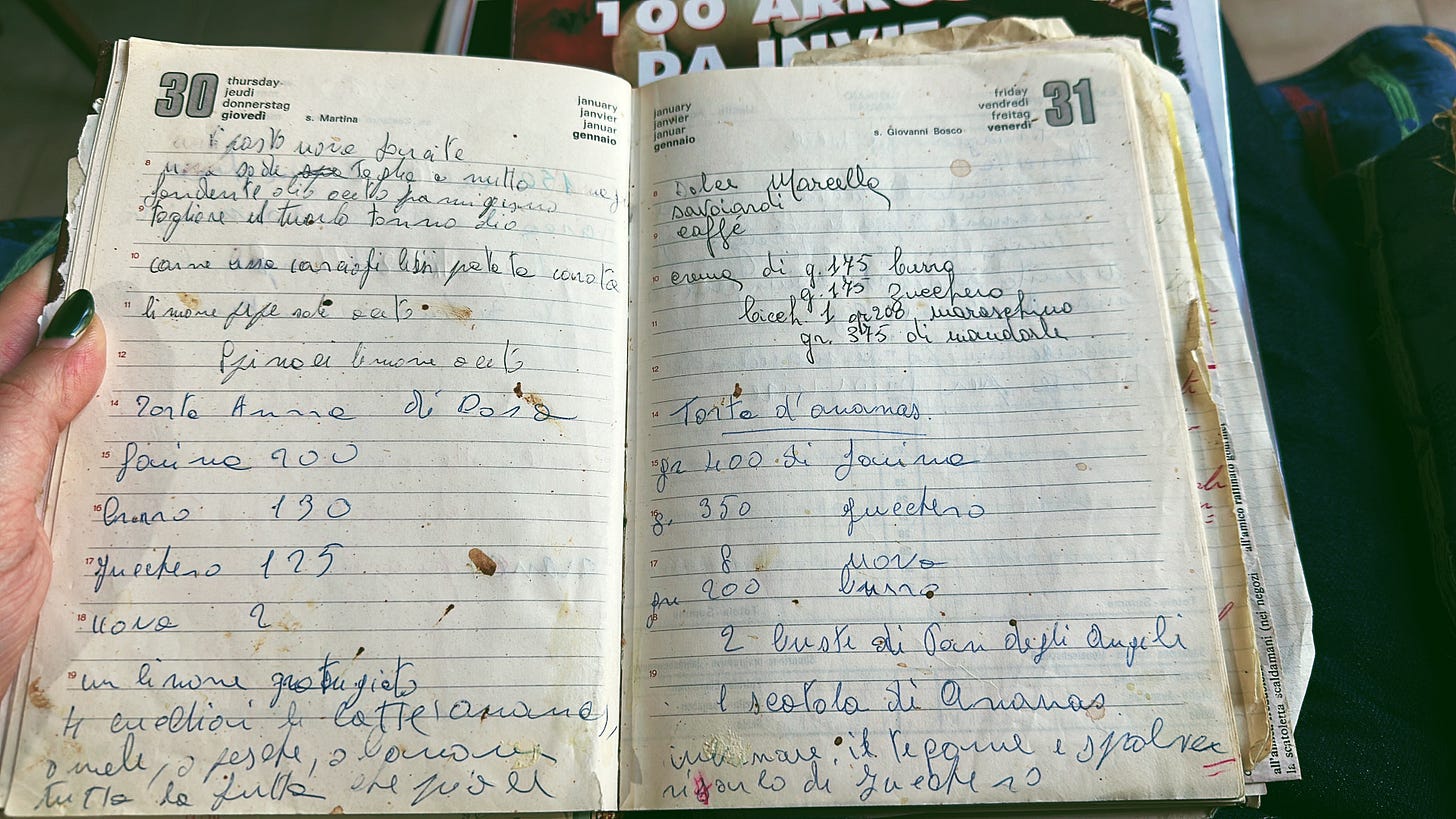 100 ARRO
DA INVITO
30
thursday
jeudi
donnerstag
giovedì
s. Martina
january
janvier
januar
gennaio
8
9
togliere il tuorlo tonno olio
10
carne carciofi patate carote
11
limone pepe sale aceto
12
limone aceto
14 Torta Anna di Rosa
15 farina 200
16 burro 130
17 zucchero 125
18 uova 2
19 un limone grattugiato
4 cucchiai di latte (ananas),
o mele, o pesche, o banane
tutta la frutta che
january
janvier
januar
gennaio
friday
vendredi
freitag
venerdì
31
s. Giovanni Bosco
8 Dolce Marcella
savoiardi
9 caffè
10 crema di g. 175 burro
g. 175 zucchero
11 bicch. 1 gr 200 maraschino
gr. 375 di mandorle
12
14 Torta d'ananas.
15 gr 400 di farina
16 g. 350 zucchero
17 8 uova
gr 200 burro
18
2 buste di Pan degli Angeli
19
1 scatola di Ananas
il tegame e
di zucchero
la scatoletta scaldamani (nei negozi
all'amico raffinato gourmet